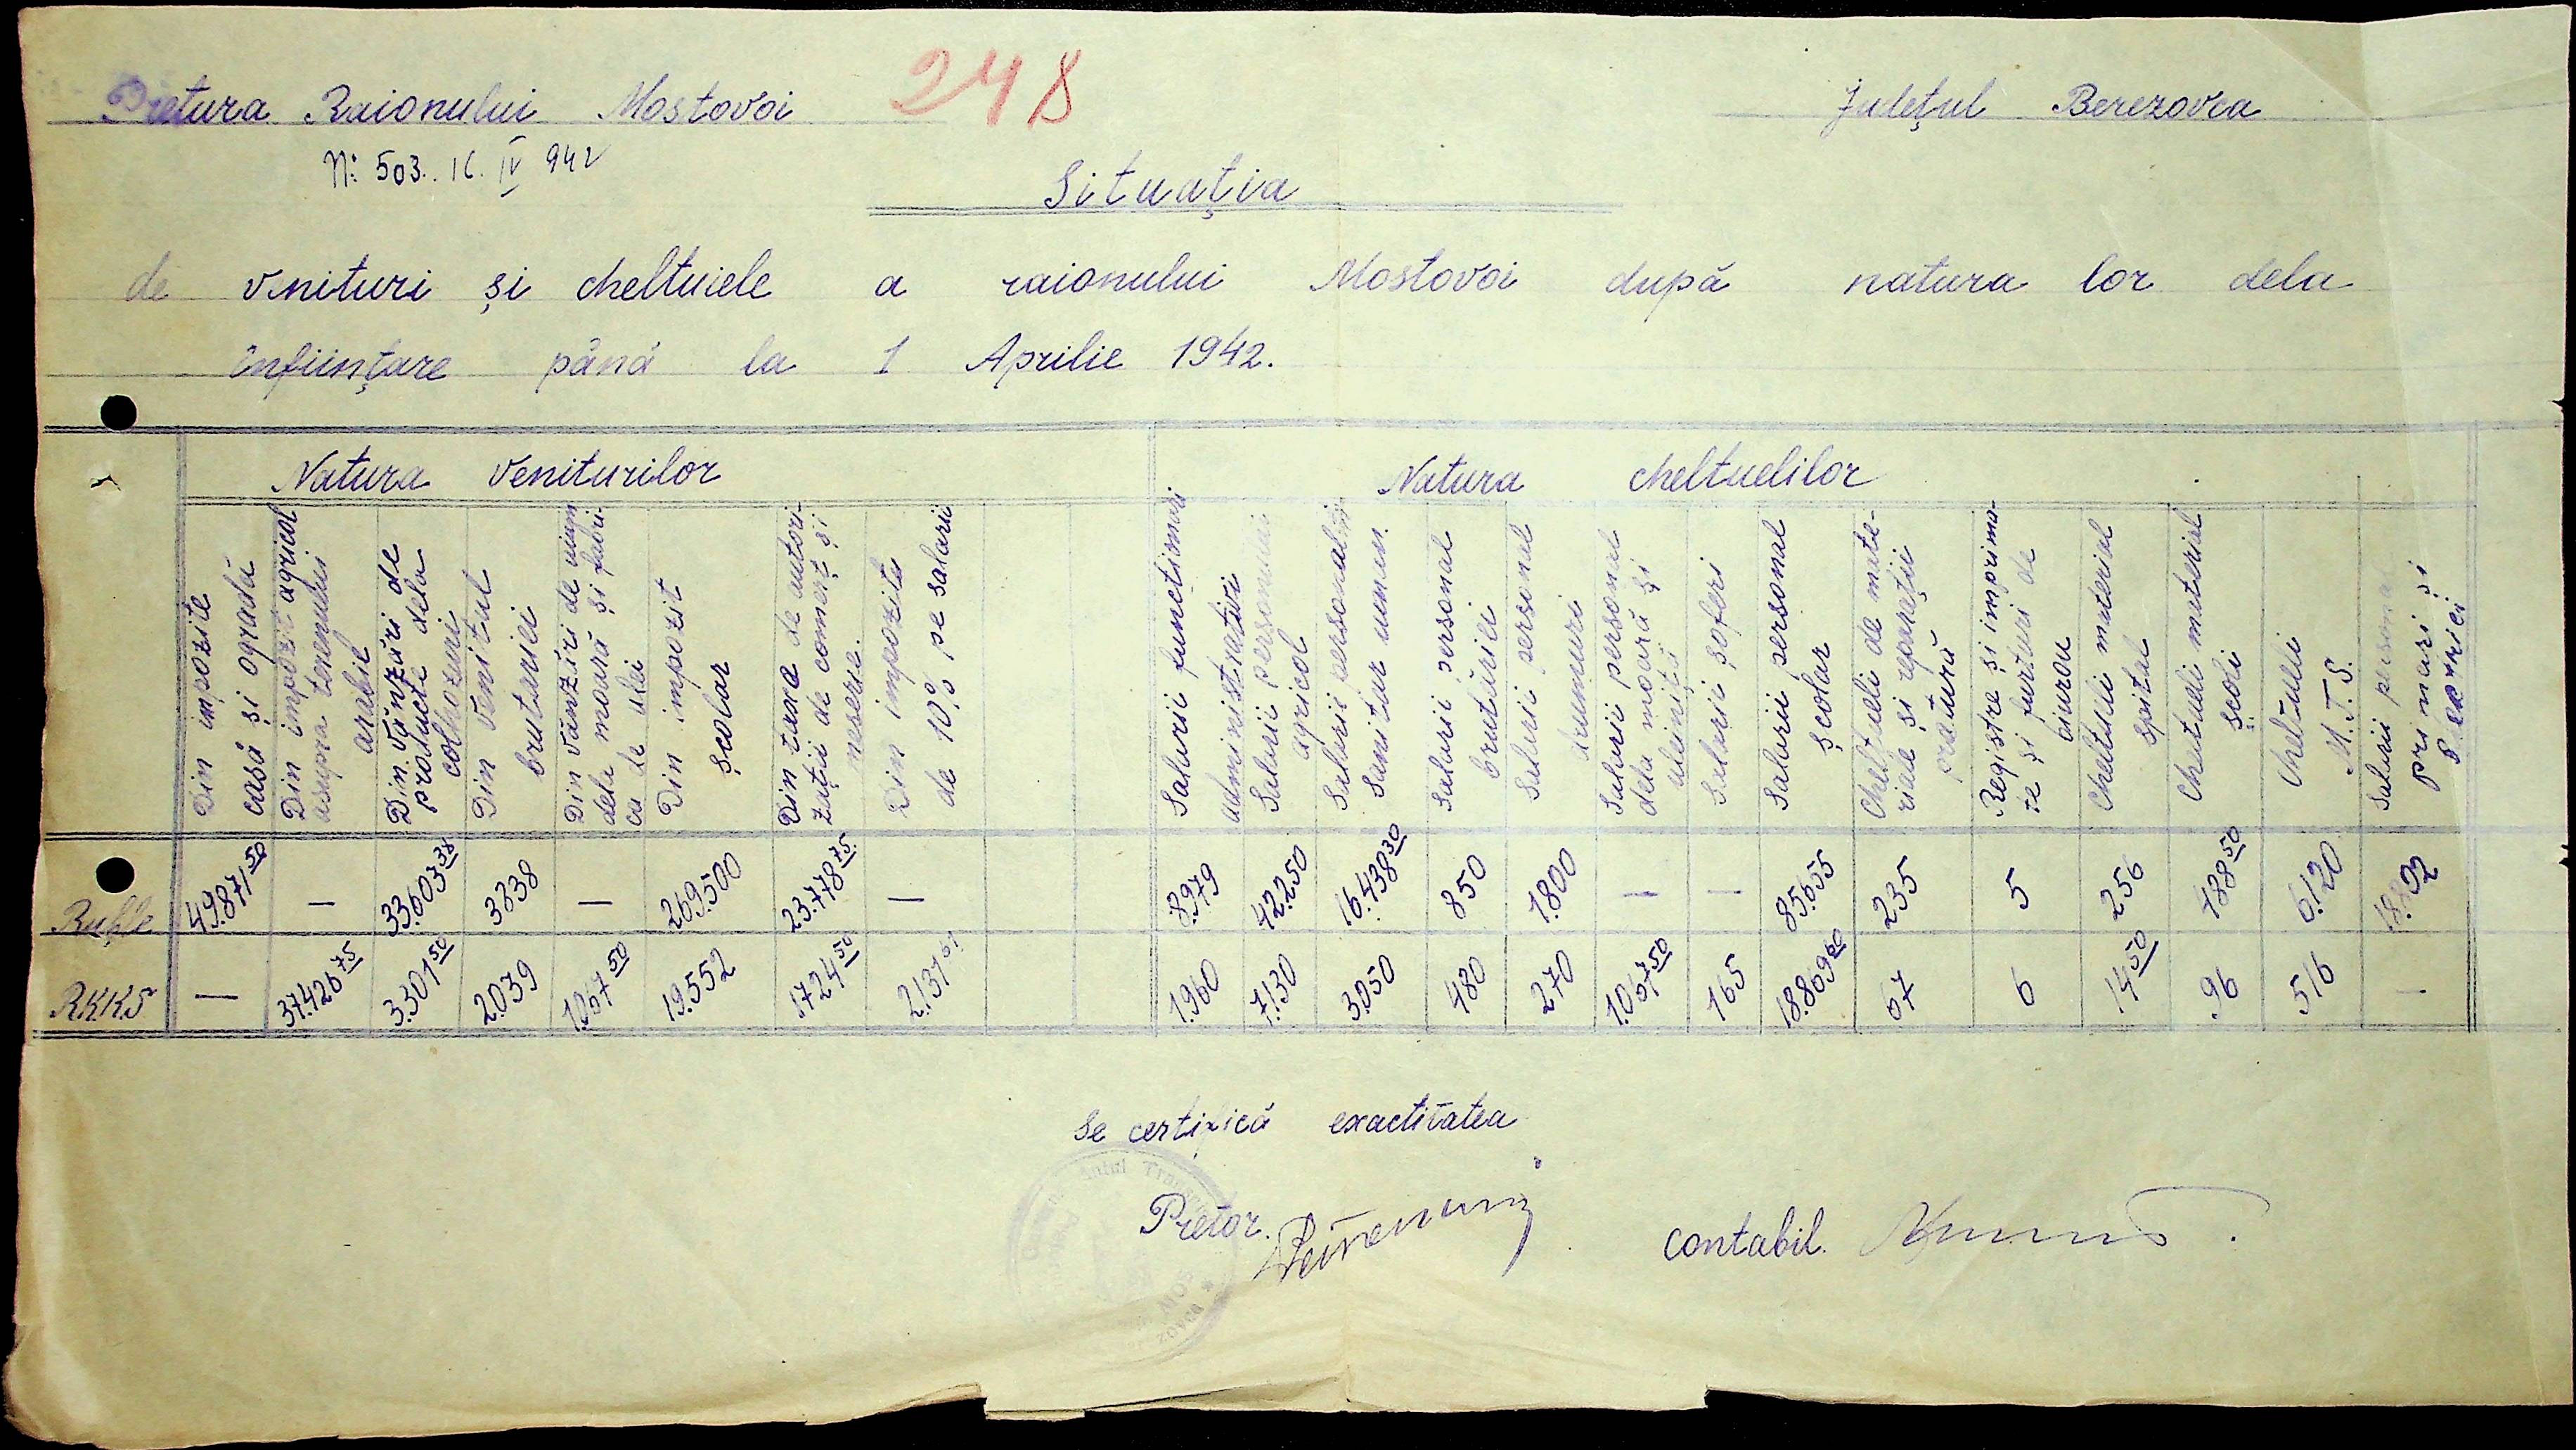 Pretura Raionului Mostovoi
248
Județul Berezovca
N: 503. 16. IV 942
Situația
de venituri și cheltuiele a raionului Mostovoi după natura lor dela
înființare până la 1 Aprilie 1942.
Natura veniturilor
Natura cheltuelilor
Din impozite
casă și ogradă
Din impozit agricol
asupra terenului
arabil
Din vânzări de
producte dela
colhozuri
Din venitul
brutăriei
Din vânzări de
dela moară și fabri-
ca de ulei
Din impozit
școlar
Din taxa de autori-
zații de comerț și
meserie.
Din impozitu
de 10% pe salarii
Salarii funcționari
administrativi
Salarii personalui
agricol
Salarii personalului
sanitar uman
Salarii personal
brutăriei
Salarii personal
drumuri
Salarii personal
dela moară și
uleiniță
Salarii șoferi
Salarii personal
școlar
Cheltueli de mate-
riale și reparații
pratură
Registre și imprima-
te și furturi de
birou
Cheltueli material
spital
Cheltueli material
școli
Cheltueli
M.T.S.
Salarii personal
primari și
Ruble
49.871 50
—
33.603 38
3838
—
269.500
23.778 75
—
8.979
42.250
16.438 30
850
1.800
—
—
85.655
235
5
256
188 50
6.120
RKKS
—
37.426 75
3.301 50
2.039
1.267 50
19.552
1.724 50
2.131
1.960
7.130
3.050
480
270
1.067 50
165
18.869 60
67
6
14 50
96
516
—
Se certifică exactitatea
Pretor.
contabil.